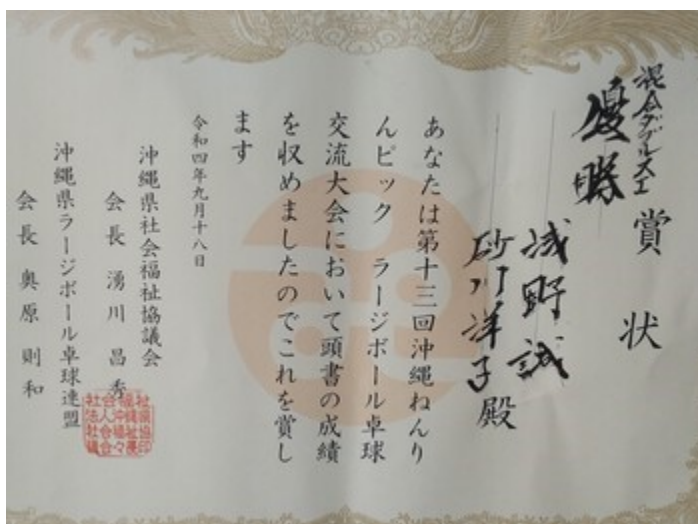 賞状
混合ダブルスエ
優勝
浅野誠
砂川洋子殿
あなたは第十三回沖縄ねんり
んピック ラージボール卓球
交流大会において頭書の成績
を収めましたのでこれを賞し
ます
令和四年九月十八日
沖縄県社会福祉協議会
会長 湧川昌秀
沖縄県ラージボール卓球連盟
会長 奥原則和